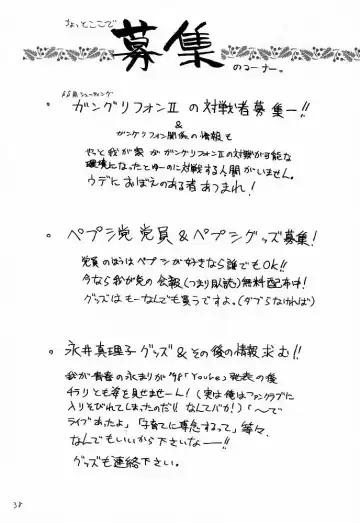 ちょっとここで
募集
のコーナー。
ガングリフォンⅡ の対戦者募集ー!!
&
ガングリフォン関係の情報も
やっと我が家がガングリフォンⅡの対戦が可能な
環境になったとゆーのに対戦する人間がいません。
ウデにおぼえのある者あつまれ!
ペプシ党 党員 & ペプシグッズ募集!
党員のほうはペプシが好きなら誰でもOK!!
今なら我が党の会報(つまり以読)無料配布中!
グッズはもーなんでも買うですよ。(ダブらなければ)
永井真理子グッズ & その後の情報求む!!
我が青春の永まりが'98「You&e」発表の後
チラリとも姿を見せませーん!(実は俺はファンクラブに
入りそびれてしまったのだ!! なんてバカ!)「〜で
ライブあったよ」「子育てに専念するって」等々、
なんでもいいから下さいなー!!
グッズも連絡下さい。
38